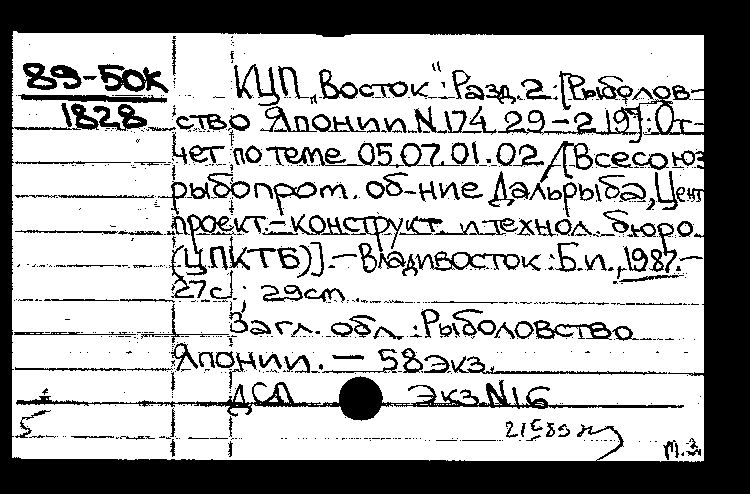 89-50к
1828
КЦП „Восток": Разд. 2: [Рыболов-
ство Японии N 174 29-2 19]: От-
чет по теме 05.07.01.02 / [Всесоюз
рыбопром. об-ние Дальрыба, Цент
проект.-конструкт. и технол. бюро
(ЦПКТБ)]. - Владивосток: Б.и., 1987. -
27с.; 29cm.
Загл. обл.: Рыболовство
Японии. - 58 экз.
ДСП Экз. N 16
5
т.з.